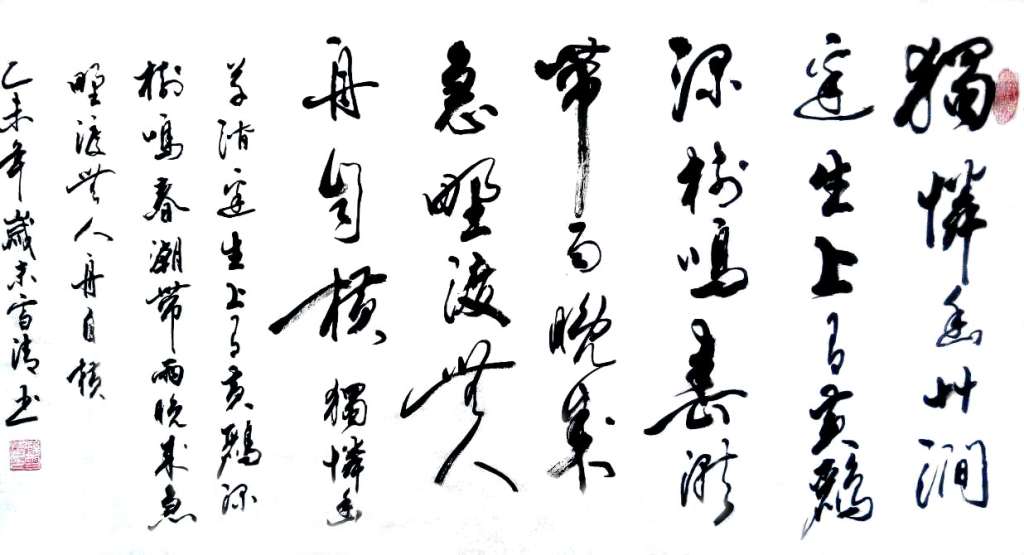 獨憐幽艸澗
邊生上有黃鸝
深樹鳴春潮
帶雨晚來
急野渡無人
舟自橫
獨憐幽
草澗邊生上有黃鸝深
樹鳴春潮帶雨晚來急
野渡無人舟自橫
乙未年歲末雪清书